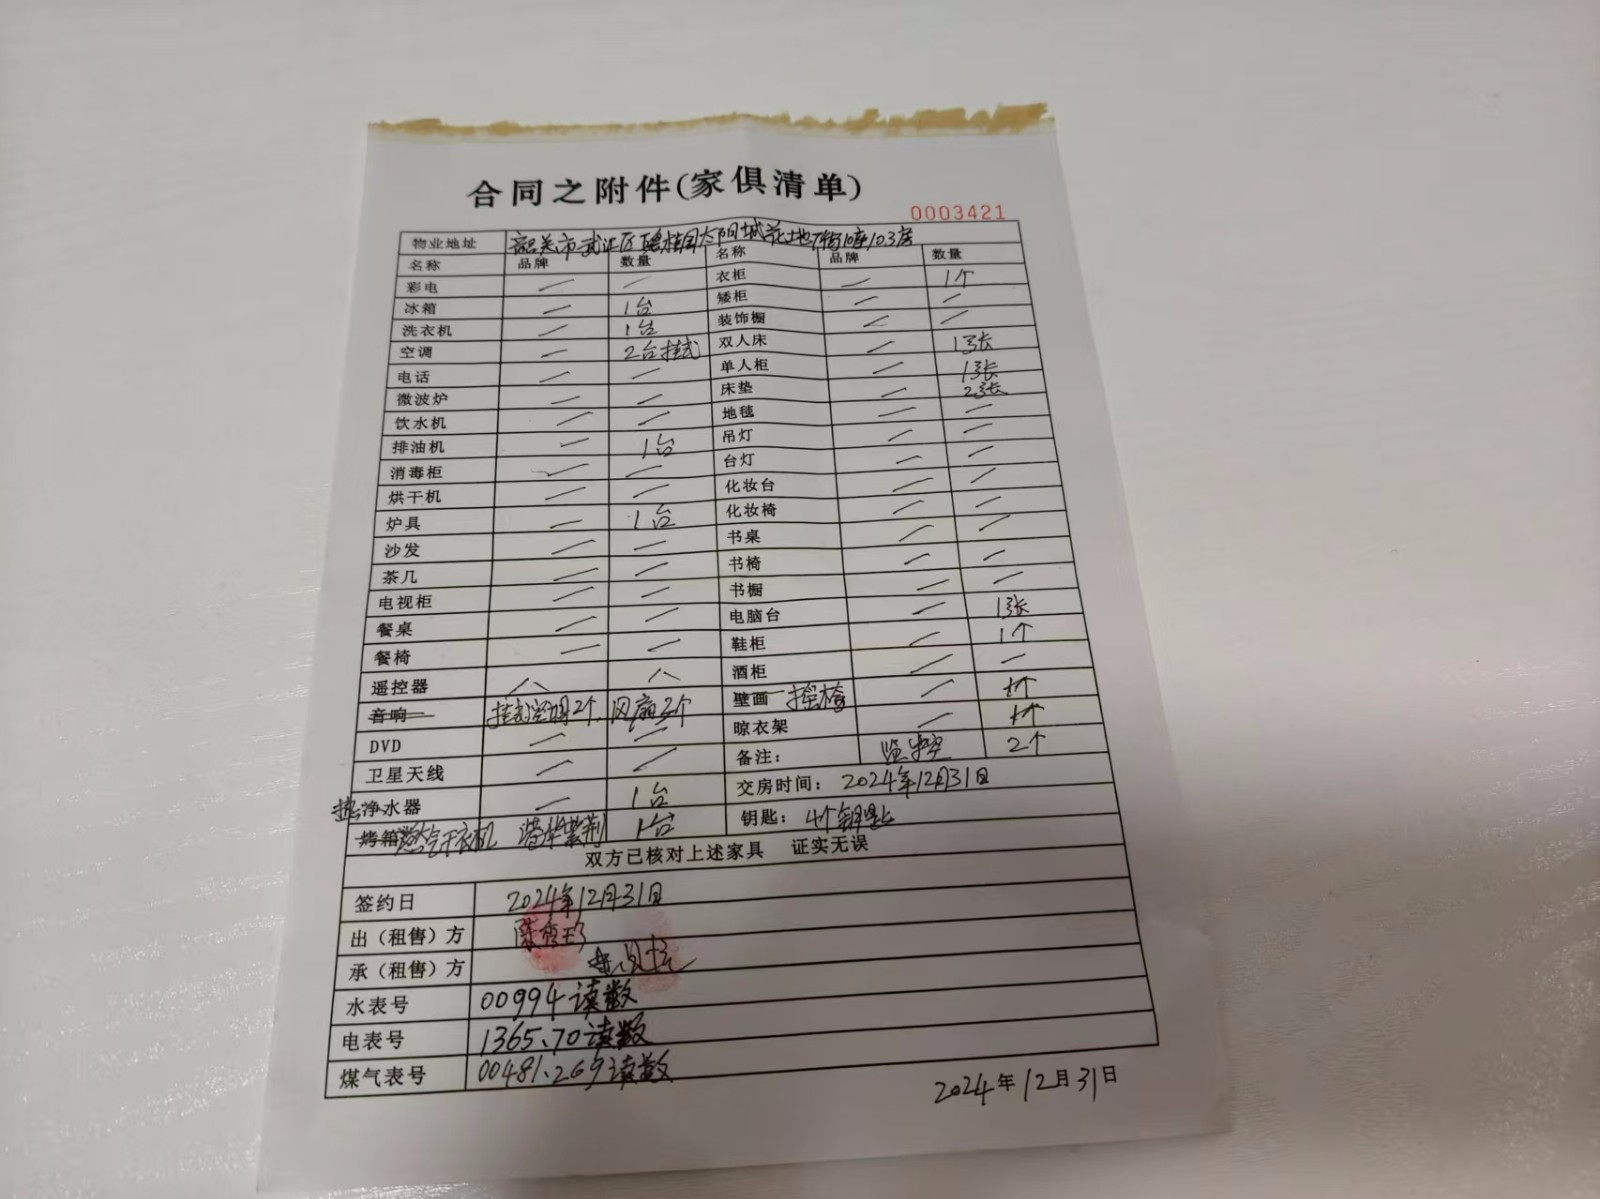 合同之附件(家俱清单)
0003421
物业地址 韶关市武江区碧桂园太阳城花地1街10座103房
名称 品牌 数量 名称 品牌 数量
彩电 — — 衣柜 — 1个
冰箱 — 1台 矮柜 — —
洗衣机 — 1台 装饰橱 — —
空调 — 2台挂式 双人床 — 1张
电话 — — 单人柜 — 1张
微波炉 — — 床垫 — 2张
饮水机 — — 地毯 — —
排油机 — 1台 吊灯 — —
消毒柜 — — 台灯 — —
烘干机 — — 化妆台 — —
炉具 — 1台 化妆椅 — —
沙发 — — 书桌 — —
茶几 — — 书椅 — —
电视柜 — — 书橱 — —
餐桌 — — 电脑台 — 1张
餐椅 — — 鞋柜 — 1个
遥控器 酒柜 — —
音响 挂式空调2个、风扇3个 壁画 摇椅 — 1个
DVD — — 晾衣架 — 1个
卫星天线 — — 备注: 监控 2个
净水器 — 1台 交房时间: 2024年12月31日
烤箱 燃气干衣机 1台 钥匙: 4个钥匙
双方已核对上述家具 证实无误
签约日 2024年12月31日
出(租售)方 陈秀珍
承(租售)方
水表号 00994读数
电表号 1365.70读数
煤气表号 00481.269读数
2024年12月31日